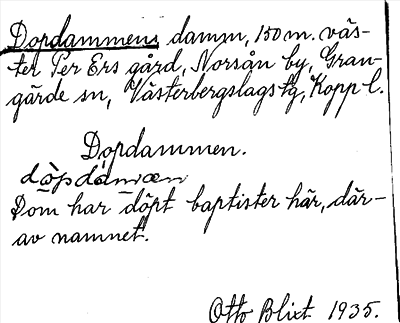 Dopdammens damm, 150 m. väs-
ter Per Ers gård, Norsån by, Gran-
gärde sn, Västerbergslags tg, Kopp. l.
Dopdammen.
döpdamæn
Dom har döpt baptister här, där-
av namnet.
Otto Blixt 1935.